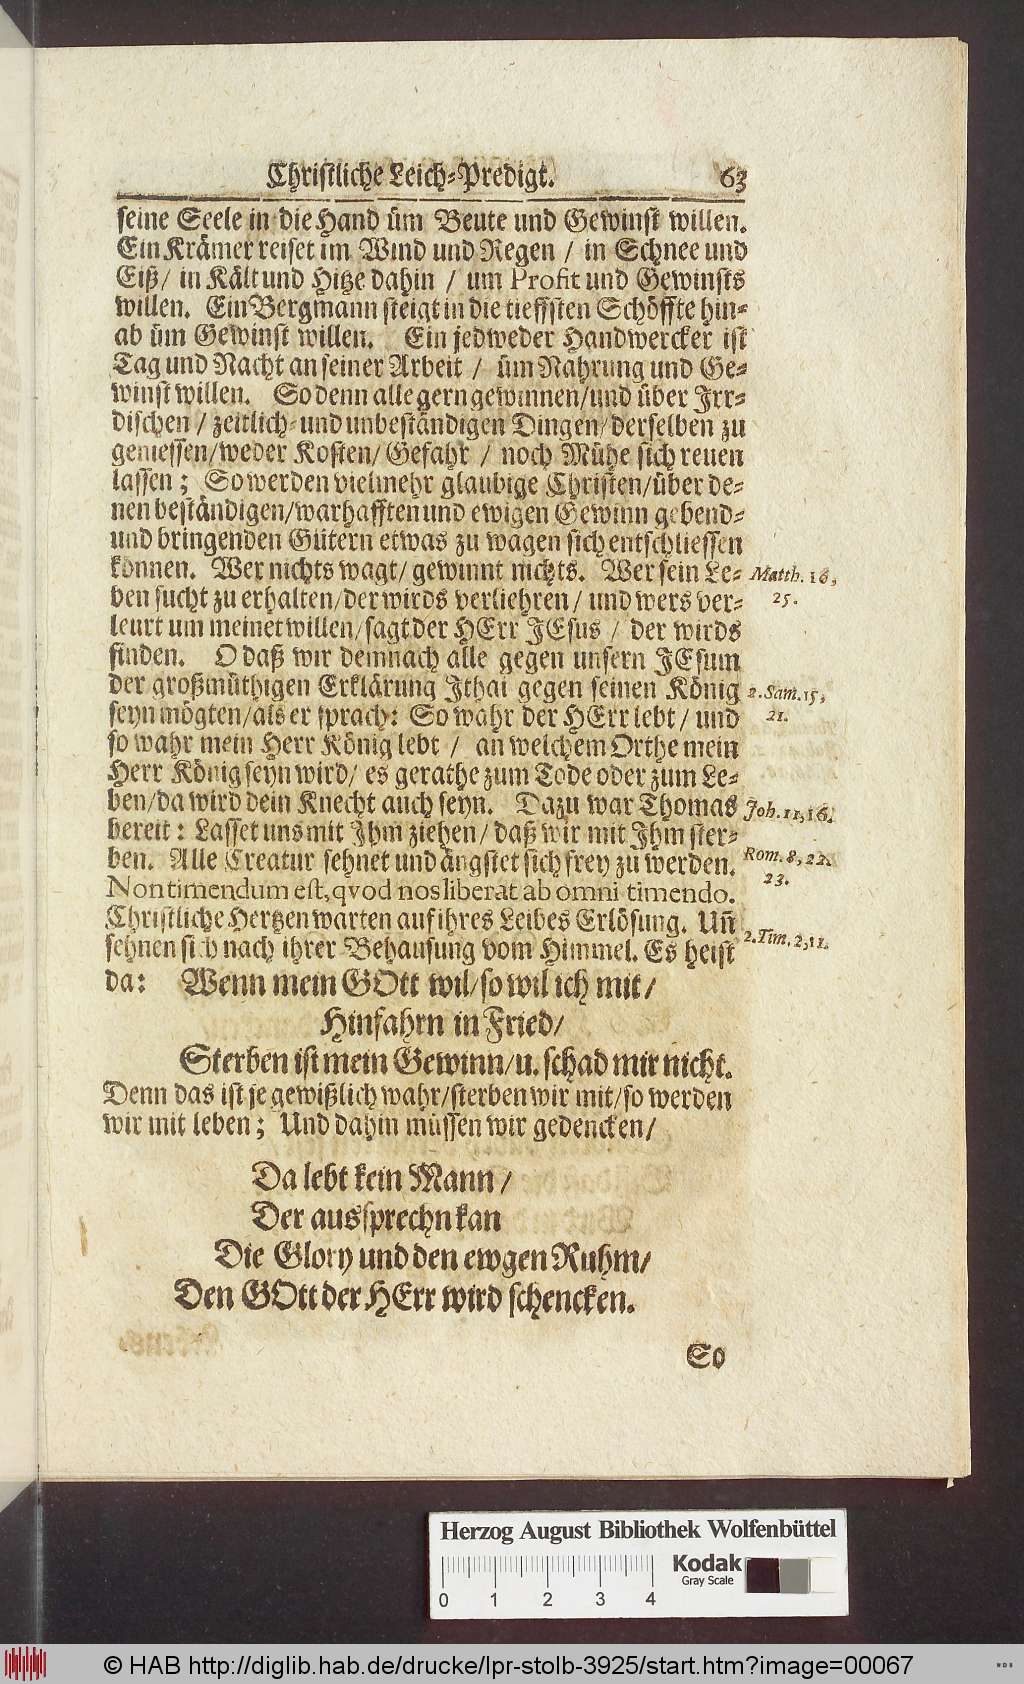 Christliche Leich-Predigt. 63
seine Seele in die Hand üm Beute und Gewinst willen.
Ein Krämer reiset im Wind und Regen / in Schnee und
Eiß/ in Kält und Hitze dahin / um Profit und Gewinsts
willen. Ein Bergmann steigt in die tieffsten Schöffte hin-
ab üm Gewinst willen. Ein jedweder Handwercker ist
Tag und Nacht an seiner Arbeit / üm Nahrung und Ge-
winst willen. So denn alle gern gewinnen/und über Irr-
dischen / zeitlich- und unbeständigen Dingen/derselben zu
geniessen/weder Kosten/ Gefahr / noch Mühe sich reuen
lassen ; So werden vielmehr glaubige Christen/über de-
nen beständigen/warhafften und ewigen Gewinn gebend-
und bringenden Gütern etwas zu wagen sich entschliessen
können. Wer nichts wagt/ gewinnt nichts. Wer sein Le- Matth. 16,
ben sucht zu erhalten/der wirds verliehren / und wers ver- 25.
leurt um meinet willen/sagt der HErr JEsus / der wirds
finden. O daß wir demnach alle gegen unsern JEsum
der großmüthigen Erklärung Ithai gegen seinen König 2. Sam. 15,
seyn mögten/als er sprach: So wahr der HErr lebt / und 21.
so wahr mein Herr König lebt / an welchem Orthe mein
Herr König seyn wird/ es gerathe zum Tode oder zum Le-
ben/da wird dein Knecht auch seyn. Dazu war Thomas Joh. 11, 16.
bereit : Lasset uns mit Ihm ziehen/ daß wir mit Ihm ster-
ben. Alle Creatur sehnet und ängstet sich frey zu werden. Rom. 8, 22.
Non timendum est, qvod nos liberat ab omni timendo. 23.
Christliche Hertzen warten auf ihres Leibes Erlösung. Uñ
sehnen sich nach ihrer Behausung vom Himmel. Es heist 2. Tim. 2, 11.
da: Wenn mein GOtt wil/so wil ich mit /
Hinfahrn in Fried/
Sterben ist mein Gewinn/u. schad mir nicht.
Denn das ist je gewißlich wahr/sterben wir mit/so werden
wir mit leben ; Und dahin müssen wir gedencken /
Da lebt kein Mann /
Der aussprechn kan
Die Glory und den ewgen Ruhm/
Den GOtt der HErr wird schencken.
So
Herzog August Bibliothek Wolfenbüttel
Kodak
Gray Scale
0 1 2 3 4
© HAB http://diglib.hab.de/drucke/lpr-stolb-3925/start.htm?image=00067